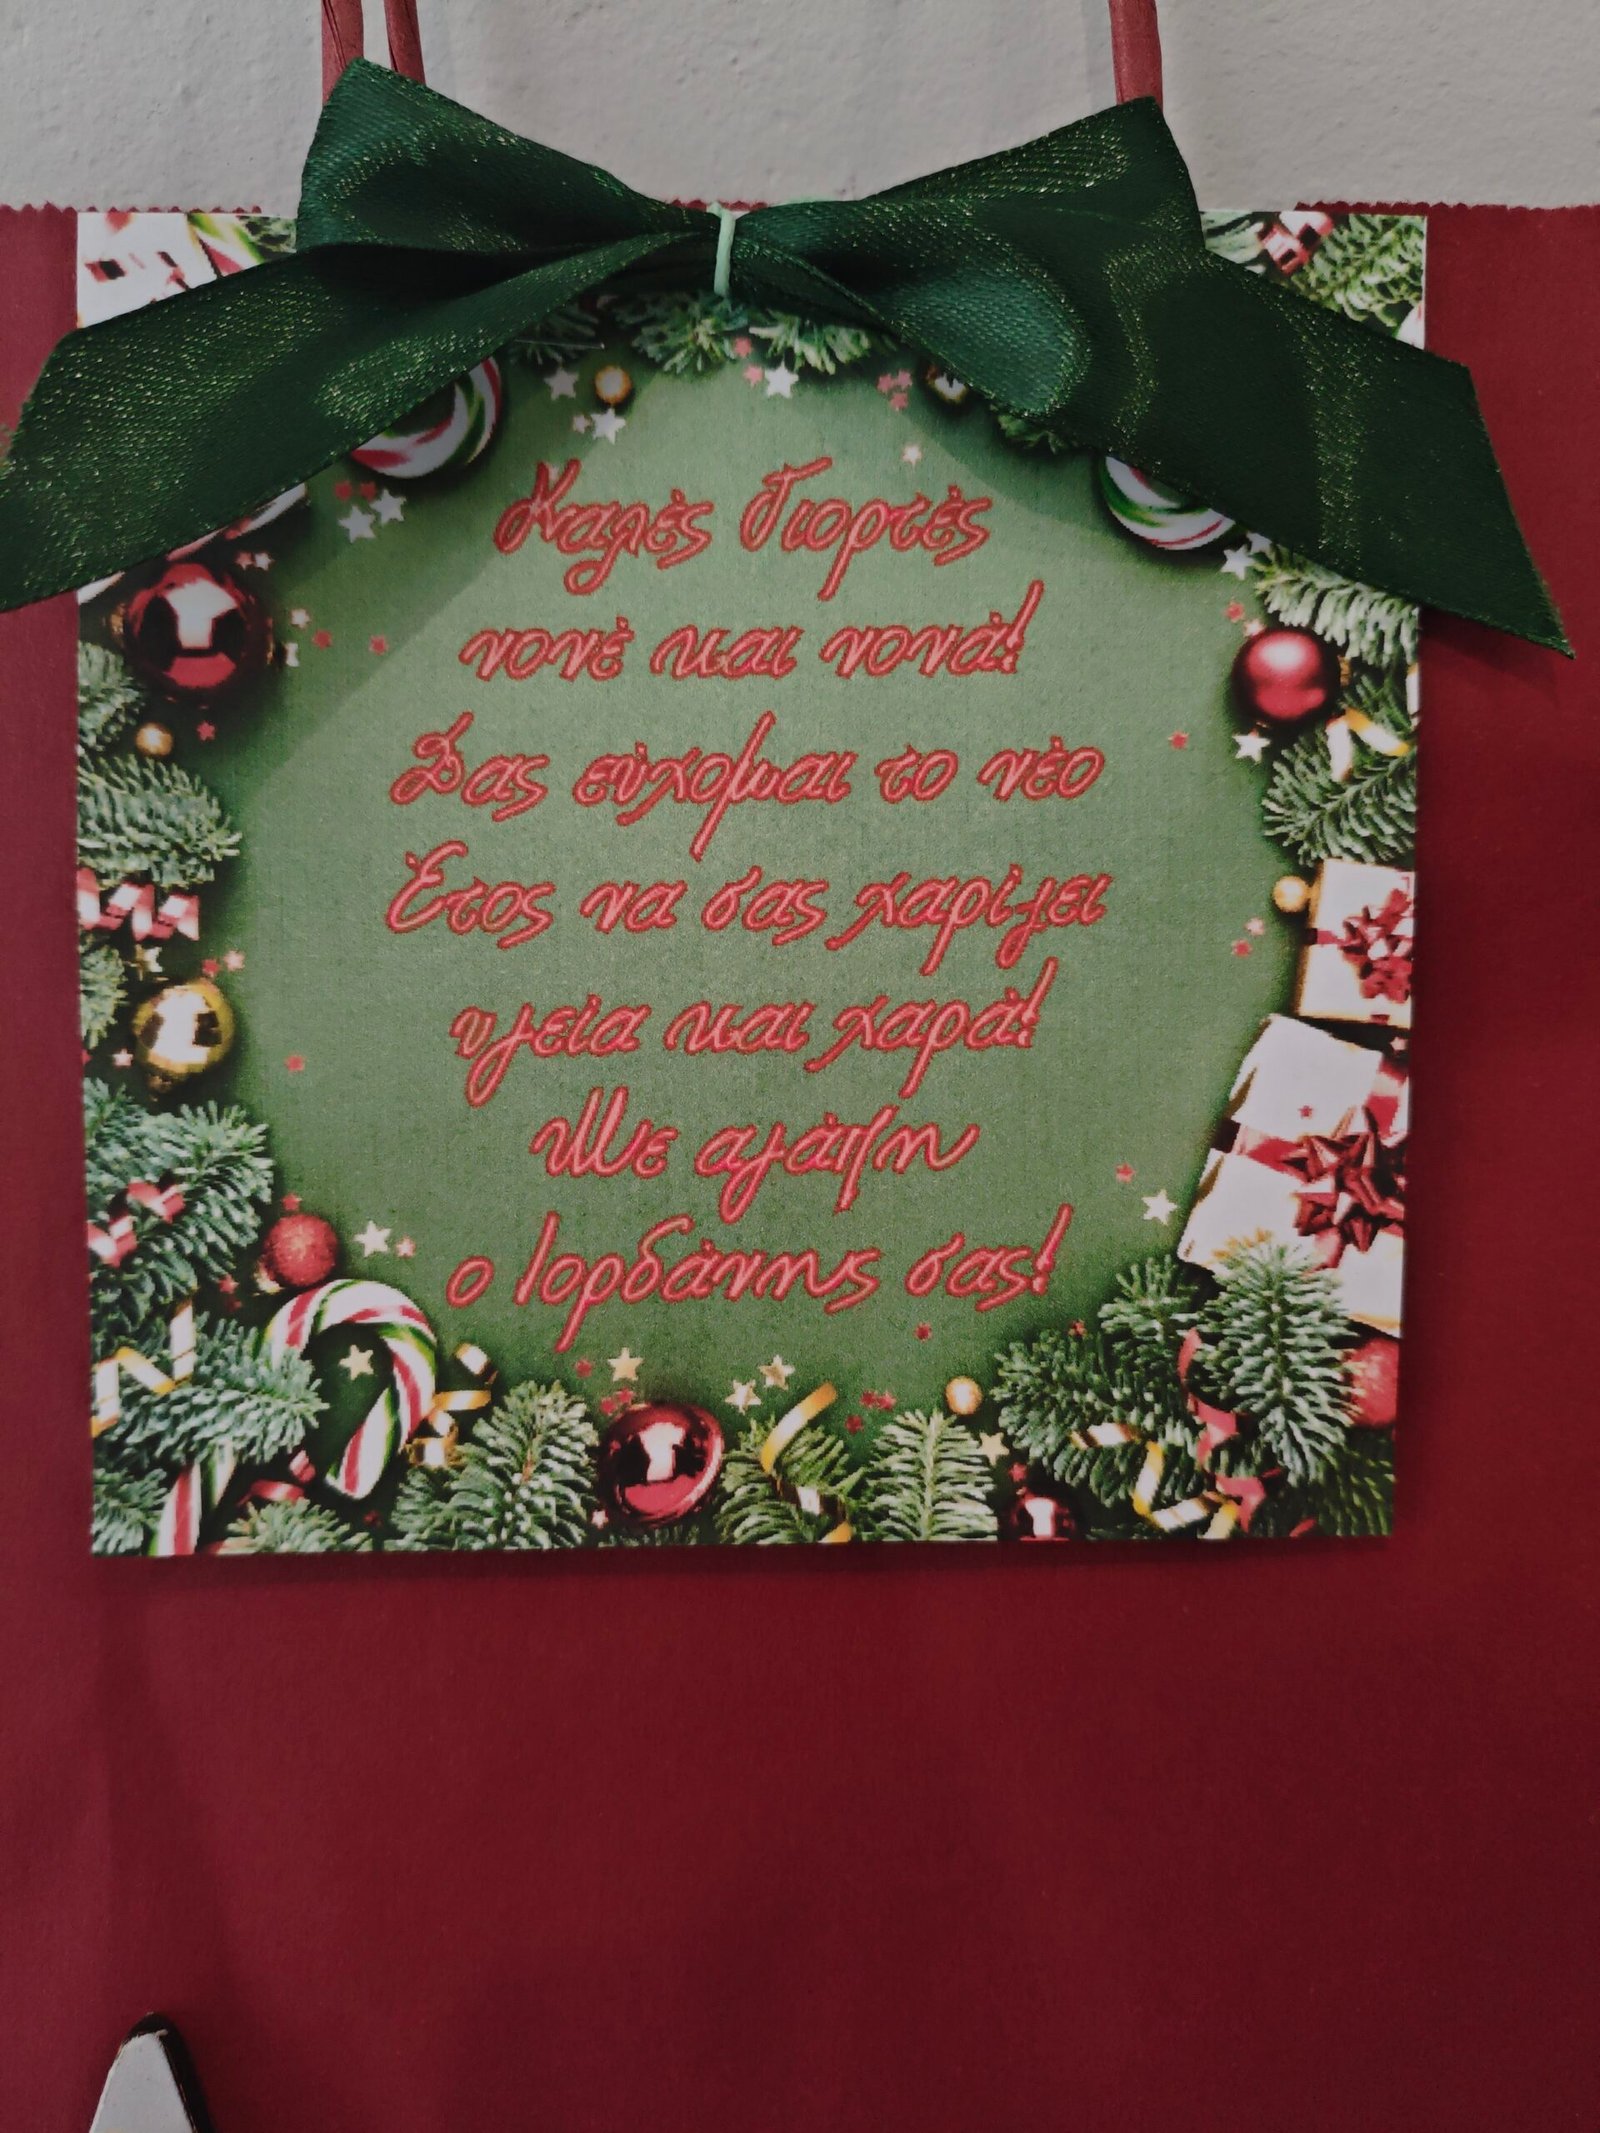 Καλές Γιορτές
νονέ και νονά!
Σας εύχομαι το νέο
Έτος να σας χαρίζει
υγεία και χαρά!
Με αγάπη
ο Ιορδάνης σας!